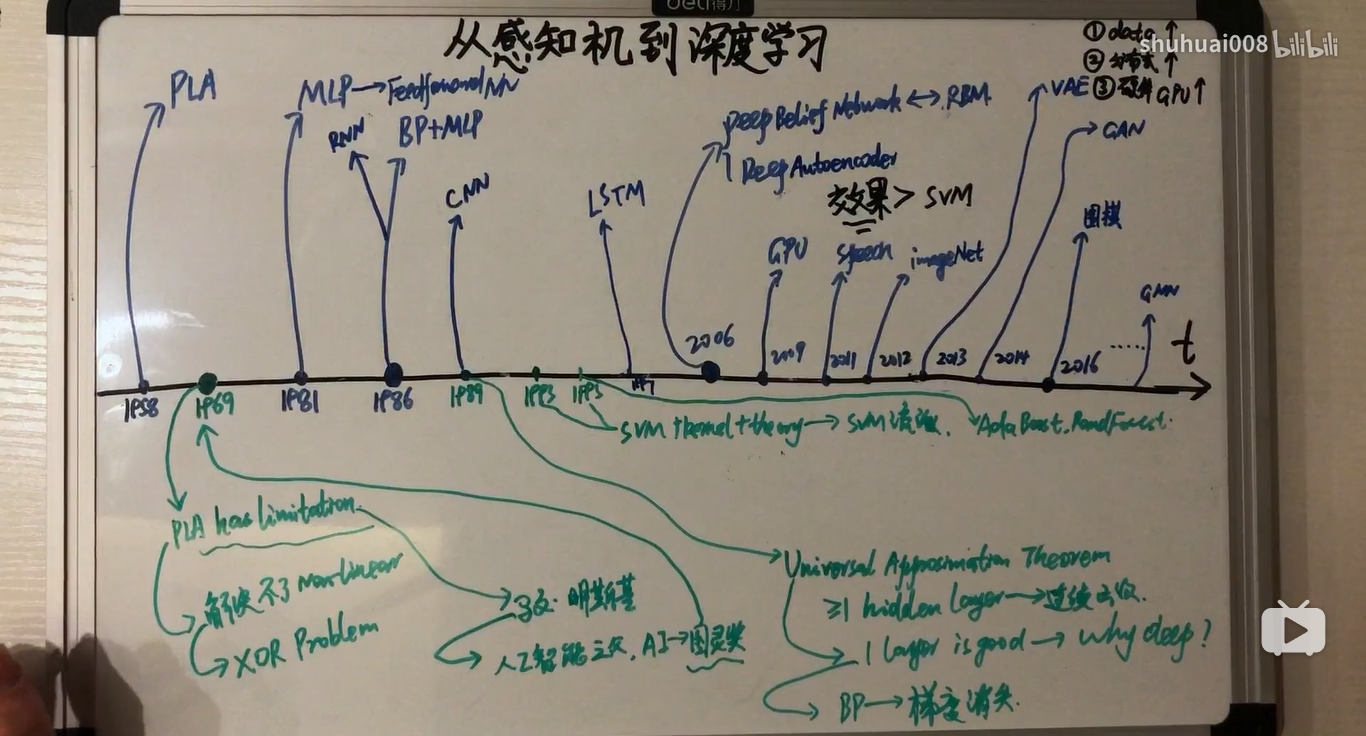 deli得力
从感知机到深度学习
① data ↑
shuhuai008 bilibili
② 分布式 ↑
③ 硬件 GPU ↑
PLA
MLP → Feedforward NN
RNN
BP+MLP
CNN
LSTM
Deep Belief Network ↔ RBM
Deep Autoencoder
效果 > SVM
GPU
speech
imageNet
VAE
GAN
围棋
GNN
t
1958
1969
1981
1986
1989
1993
1995
1997
2006
2009
2011
2012
2013
2014
2016
......
SVM + kernel + theory → SVM 流派.
AdaBoost, RandForest.
PLA has limitation
解决不了 non-linear
XOR Problem
明斯基
人工智能之父, AI → 图灵奖
Universal Approximation Theorem
≥1 hidden layer → 连续函数.
1 layer is good → why deep?
BP → 梯度消失.